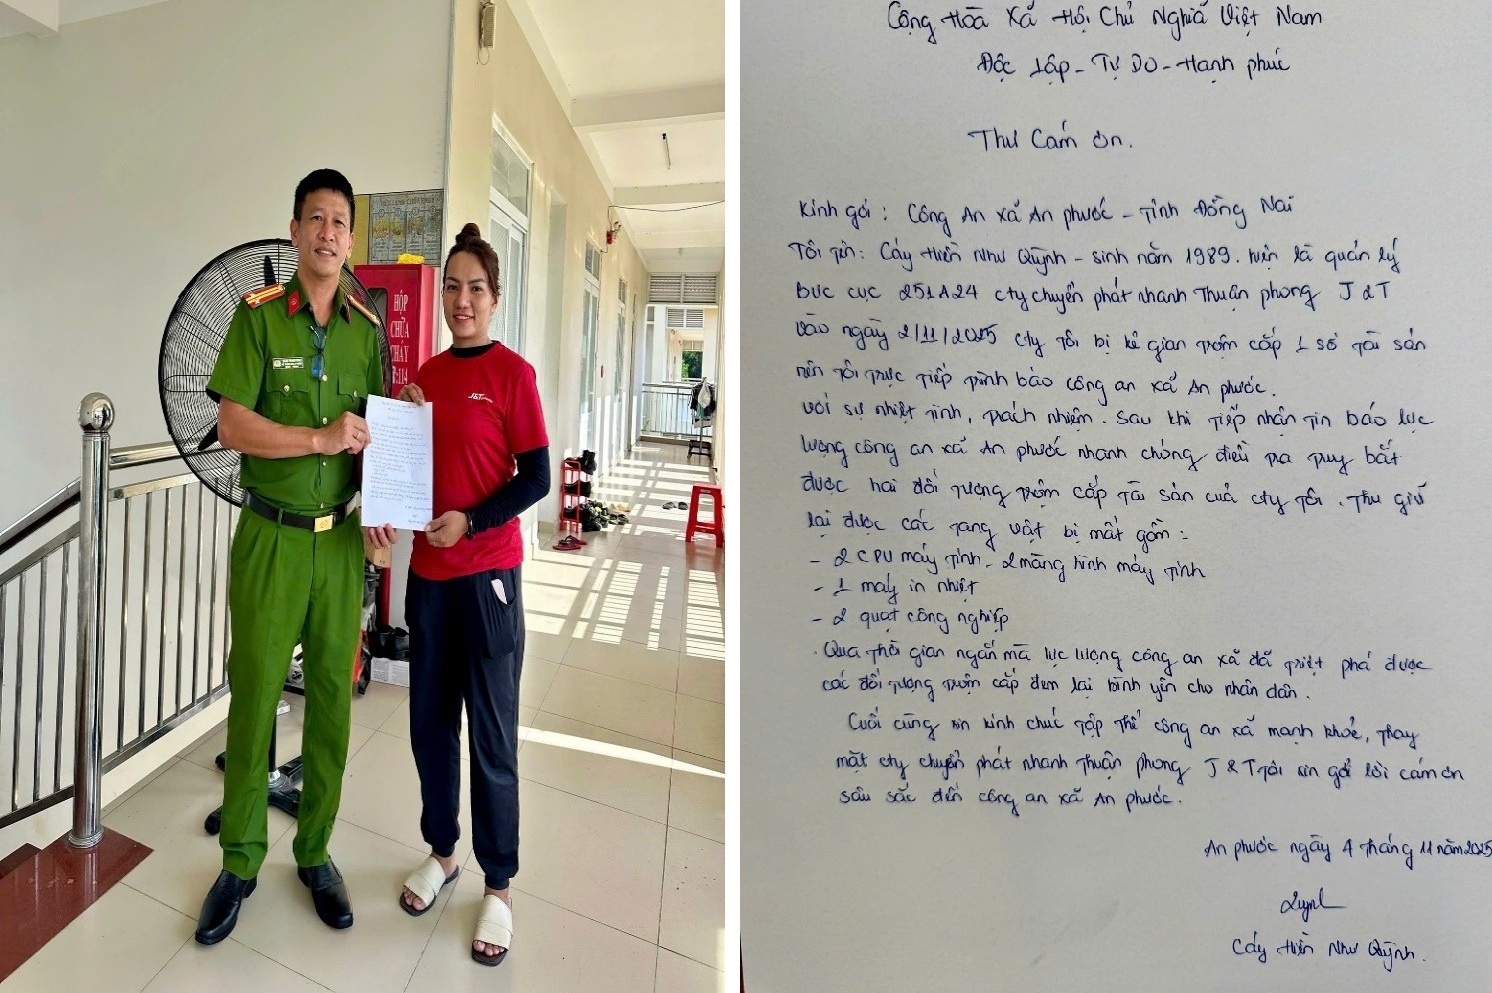 HỘP
CHỮA
CHÁY
J&T
Cộng Hoà Xã Hội Chủ Nghĩa Việt Nam
Độc Lập - Tự Do - Hạnh phúc
Thư Cảm ơn.
Kính gởi: Công An xã An phước - Tỉnh Đồng Nai
Tôi tên: Cáy Hiền Như Quỳnh - sinh năm 1989. hiện là quản lý
bưu cục 251A24 cty chuyển phát nhanh Thuận phong J&T
vào ngày 2/11/2025 cty tôi bị kẻ gian trộm cắp 1 số tài sản
nên tôi trực tiếp trình báo công an xã An phước.
với sự nhiệt tình, trách nhiệm. Sau khi tiếp nhận tin báo lực
lượng công an xã An phước nhanh chóng điều tra truy bắt
được hai đối tượng trộm cắp tài sản của cty tôi. Thu giữ
lại được các tang vật bị mất gồm:
- 2 CPU máy tính - 2 màng hình máy tính
- 1 máy in nhiệt
- 2 quạt công nghiệp
. Qua thời gian ngắn mà lực lượng công an xã đã triệt phá được
các đối tượng trộm cắp đem lại bình yên cho nhân dân.
Cuối cùng xin kính chúc tập thể công an xã mạnh khoẻ, thay
mặt cty chuyển phát nhanh Thuận phong J&T tôi xin gởi lời cám ơn
sâu sắc đến công an xã An phước.
An phước ngày 4 tháng 11 năm 2025
Quỳnh
Cáy Hiền Như Quỳnh.